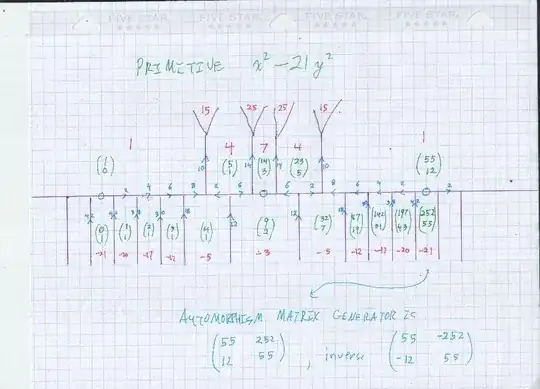 FIVE STAR FIVE STAR FIVE STAR FIVE STAR
PRIMITIVE x² - 21 y²
15 25 25 15
1 4 7 4 1
(1 0) (5 1) (14 3) (23 5) (55 12)
10 14 14 10
(0 1) (1 1) (2 1) (3 1) (4 1) (9 2) (32 7) (252 55)
-21 -20 -17 -12 -5 -3 -5 -12 -17 -20 -21
AUTOMORPHISM MATRIX GENERATOR IS
(55 252 , inverse (55 -252
12 55) -12 55)